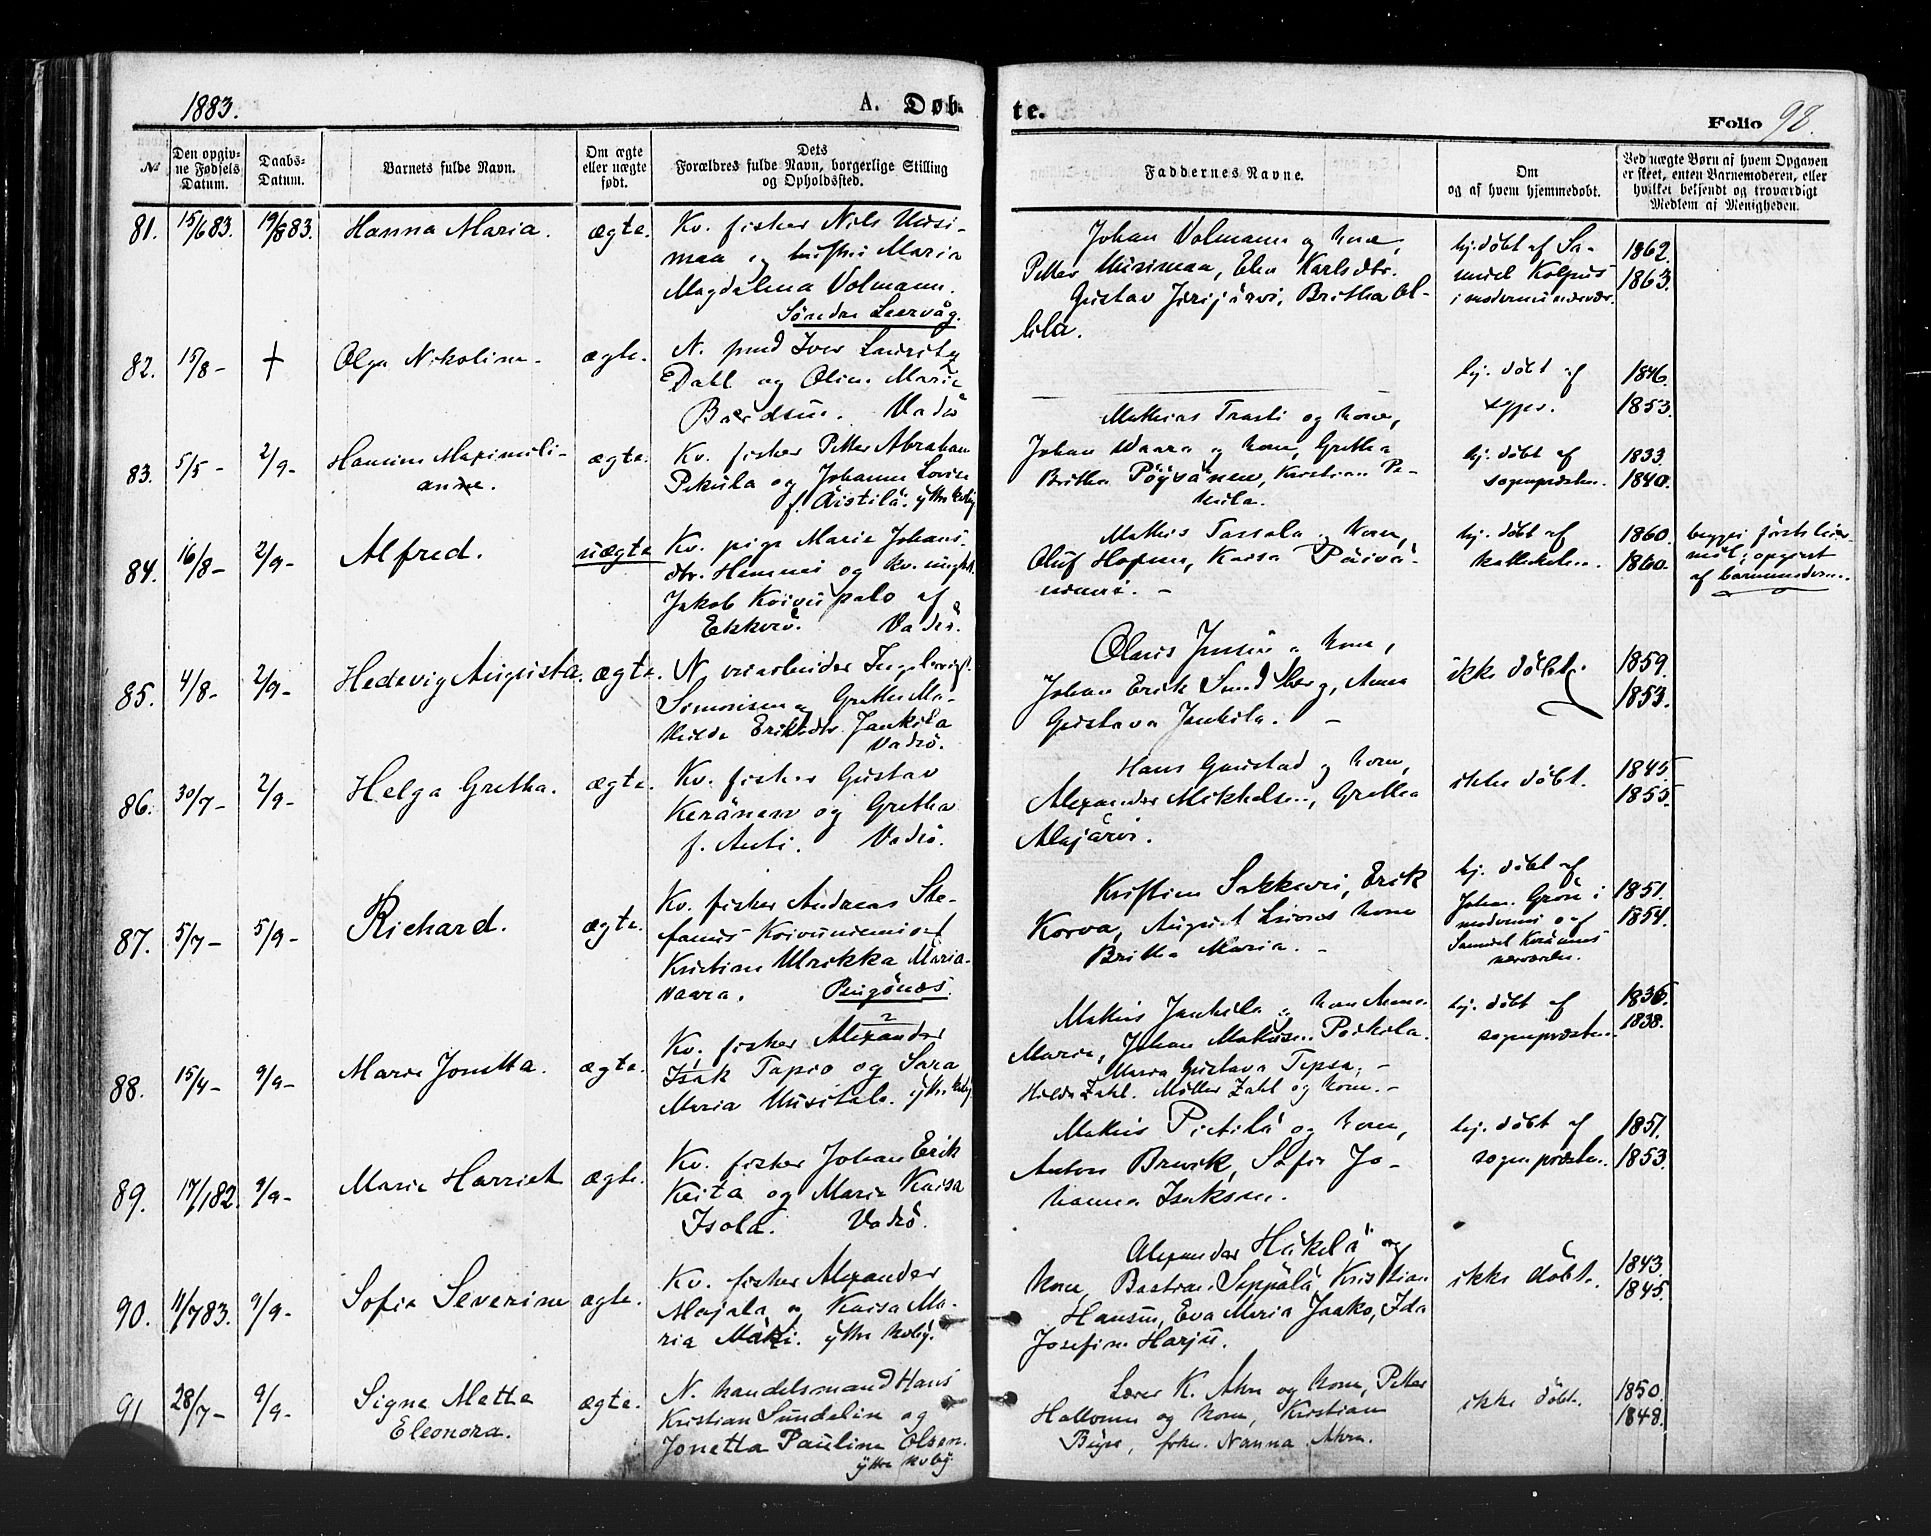 1883.
A. Døb-
te.
Folio 98.
№
Den opgiv-
ne Fødsels
Datum.
Daabs-
Datum.
Barnets fulde Navn.
Om ægte
eller uægte
født.
Dets
Forældres fulde Navn, borgerlige Stilling
og Opholdssted.
Faddernes Navne.
Om
og af hvem hjemmedøbt.
Ved uægte Børn af hvem Opgaven
er skeet, enten Barnemoderen, eller
hvilket bekjendt og troværdigt
Medlem af Menigheden.
81. 15/6 83. 19/8 83. Hanna Maria. ægte.
Kv. fisker Nils Uusi-
maa og hustru Maria
Magdalena Volmann.
Søndre Leervåg.
Johan Volmann og kone,
Petter Uusimaa, Elen Karlsdtr.
Gustav Jirijärvi, Britha Ol-
lila.
hj. døbt af Sa-
muel Kolpus
i moderens nærvær.
1862.
1863.
82. 15/8 - + Olga Nikoline. ægte.
N. Iver Lauritz
Dahl og Oline Marie
Bærdsen. Vadsö
hj. døbt af
1846.
1853.
83. 5/5 - 2/9 - Hansine Maximili-
anne. ægte.
Kv. fisker Petter Abraham
Pekula og Johanne Lovise
f. Aistilä. ytre kvby
Mathias Trasti og kone,
Johan Waara og kone, Gretha
Britha Pöysänen, Kristian Pe-
kula.
hj. døbt af
sognepresten.
1833.
1840.
84. 16/8 - 2/9 - Alfred. uægte
Kv. pige Marie Johans-
dtr. Hemmi og kv. ungk.
Jakob Koivupalo af
Ekkerö. Vadsö.
Mathis Tassala og kone,
Oluf Hopen, Kaisa Päivä-
niemi. -
hj. døbt af
kateketen.
1860.
1860.
begges første leier-
mål; opgivet
af barnemoderen.
85. 4/8 - 2/9 - Hedevig Augusta. ægte.
N. veiarbeider Ingebrigt
Simonsen og Grethe Ma-
thilde Eriksdtr. Jankila
Vadsö.
Olaus Jensen og kone,
Johan Erik Sundberg, Anna
Gustava Jankila. -
ikke døbt.
1859.
1853.
86. 30/7 - 2/9 - Helga Gretha. ægte.
Kv. fisker Gustav
Keränen og Gretha
f. Anti. Vadsö.
Hans Gaustad og kone,
Alexander Mikkelsen, Gretha
Alajärvi.
ikke døbt.
1845.
1855.
87. 5/7 - 5/9 - Richard. ægte.
Kv. fisker Andreas Ste-
fanus Koivuniemi og
Kristine Ulrikka Maria
Vaara. Bugönæs.
Kristian Sakkeri, Erik
Korva, August kone
Britha Maria. -
hj. døbt af
Johan Grön i
moderens og
Samuel Keränens
nærværelse.
1851.
1854.
88. 15/4 - 9/9 - Marie Jonetta. ægte.
Kv. fisker Alexander
Isak Tapio og Sara
Maria Uusitalo. ytre kvby
Mathis Jankila og kone Anna
Maria, Johan Mathisen Poikela.
Maria Gustava Tepsa, -
Hilda Zahl. Müller Zahl og kone. -
hj. døbt af
sognepresten.
1836.
1838.
89. 17/1 82. 9/9 - Marie Harriet ægte.
Kv. fisker Johan Erik
Keita og Marie Kaisa
Isola. Vadsö.
Mathis Pietilä og kone,
Anton Brevik, Sofie Jo-
hanna Isaksen.
hj. døbt af
sognepresten.
1851.
1853.
90. 11/7 83. 9/9 - Sofie Severine ægte.
Kv. fisker Alexander
Majala og Kaisa Ma-
ria Mäki. ytre kvby.
Alexander Heikelä og
kone, Bastian Seppälä, Kristian
Hansen, Eva Maria Jaako, Ida
Josefine Harju.
ikke døbt.
1843.
1845.
91 28/7 - 9/9 - Signe Mette
Eleonora. ægte.
N. handelsmand Hans
Kristian Sundelin og
Jonetta Pauline Olsen.
ytre kvby
Lærer K. Ahn og kone, Petter
Hallonen og kone, Kristian
Büye, frkn. Nanna Ahn.
ikke døbt.
1850.
1848.